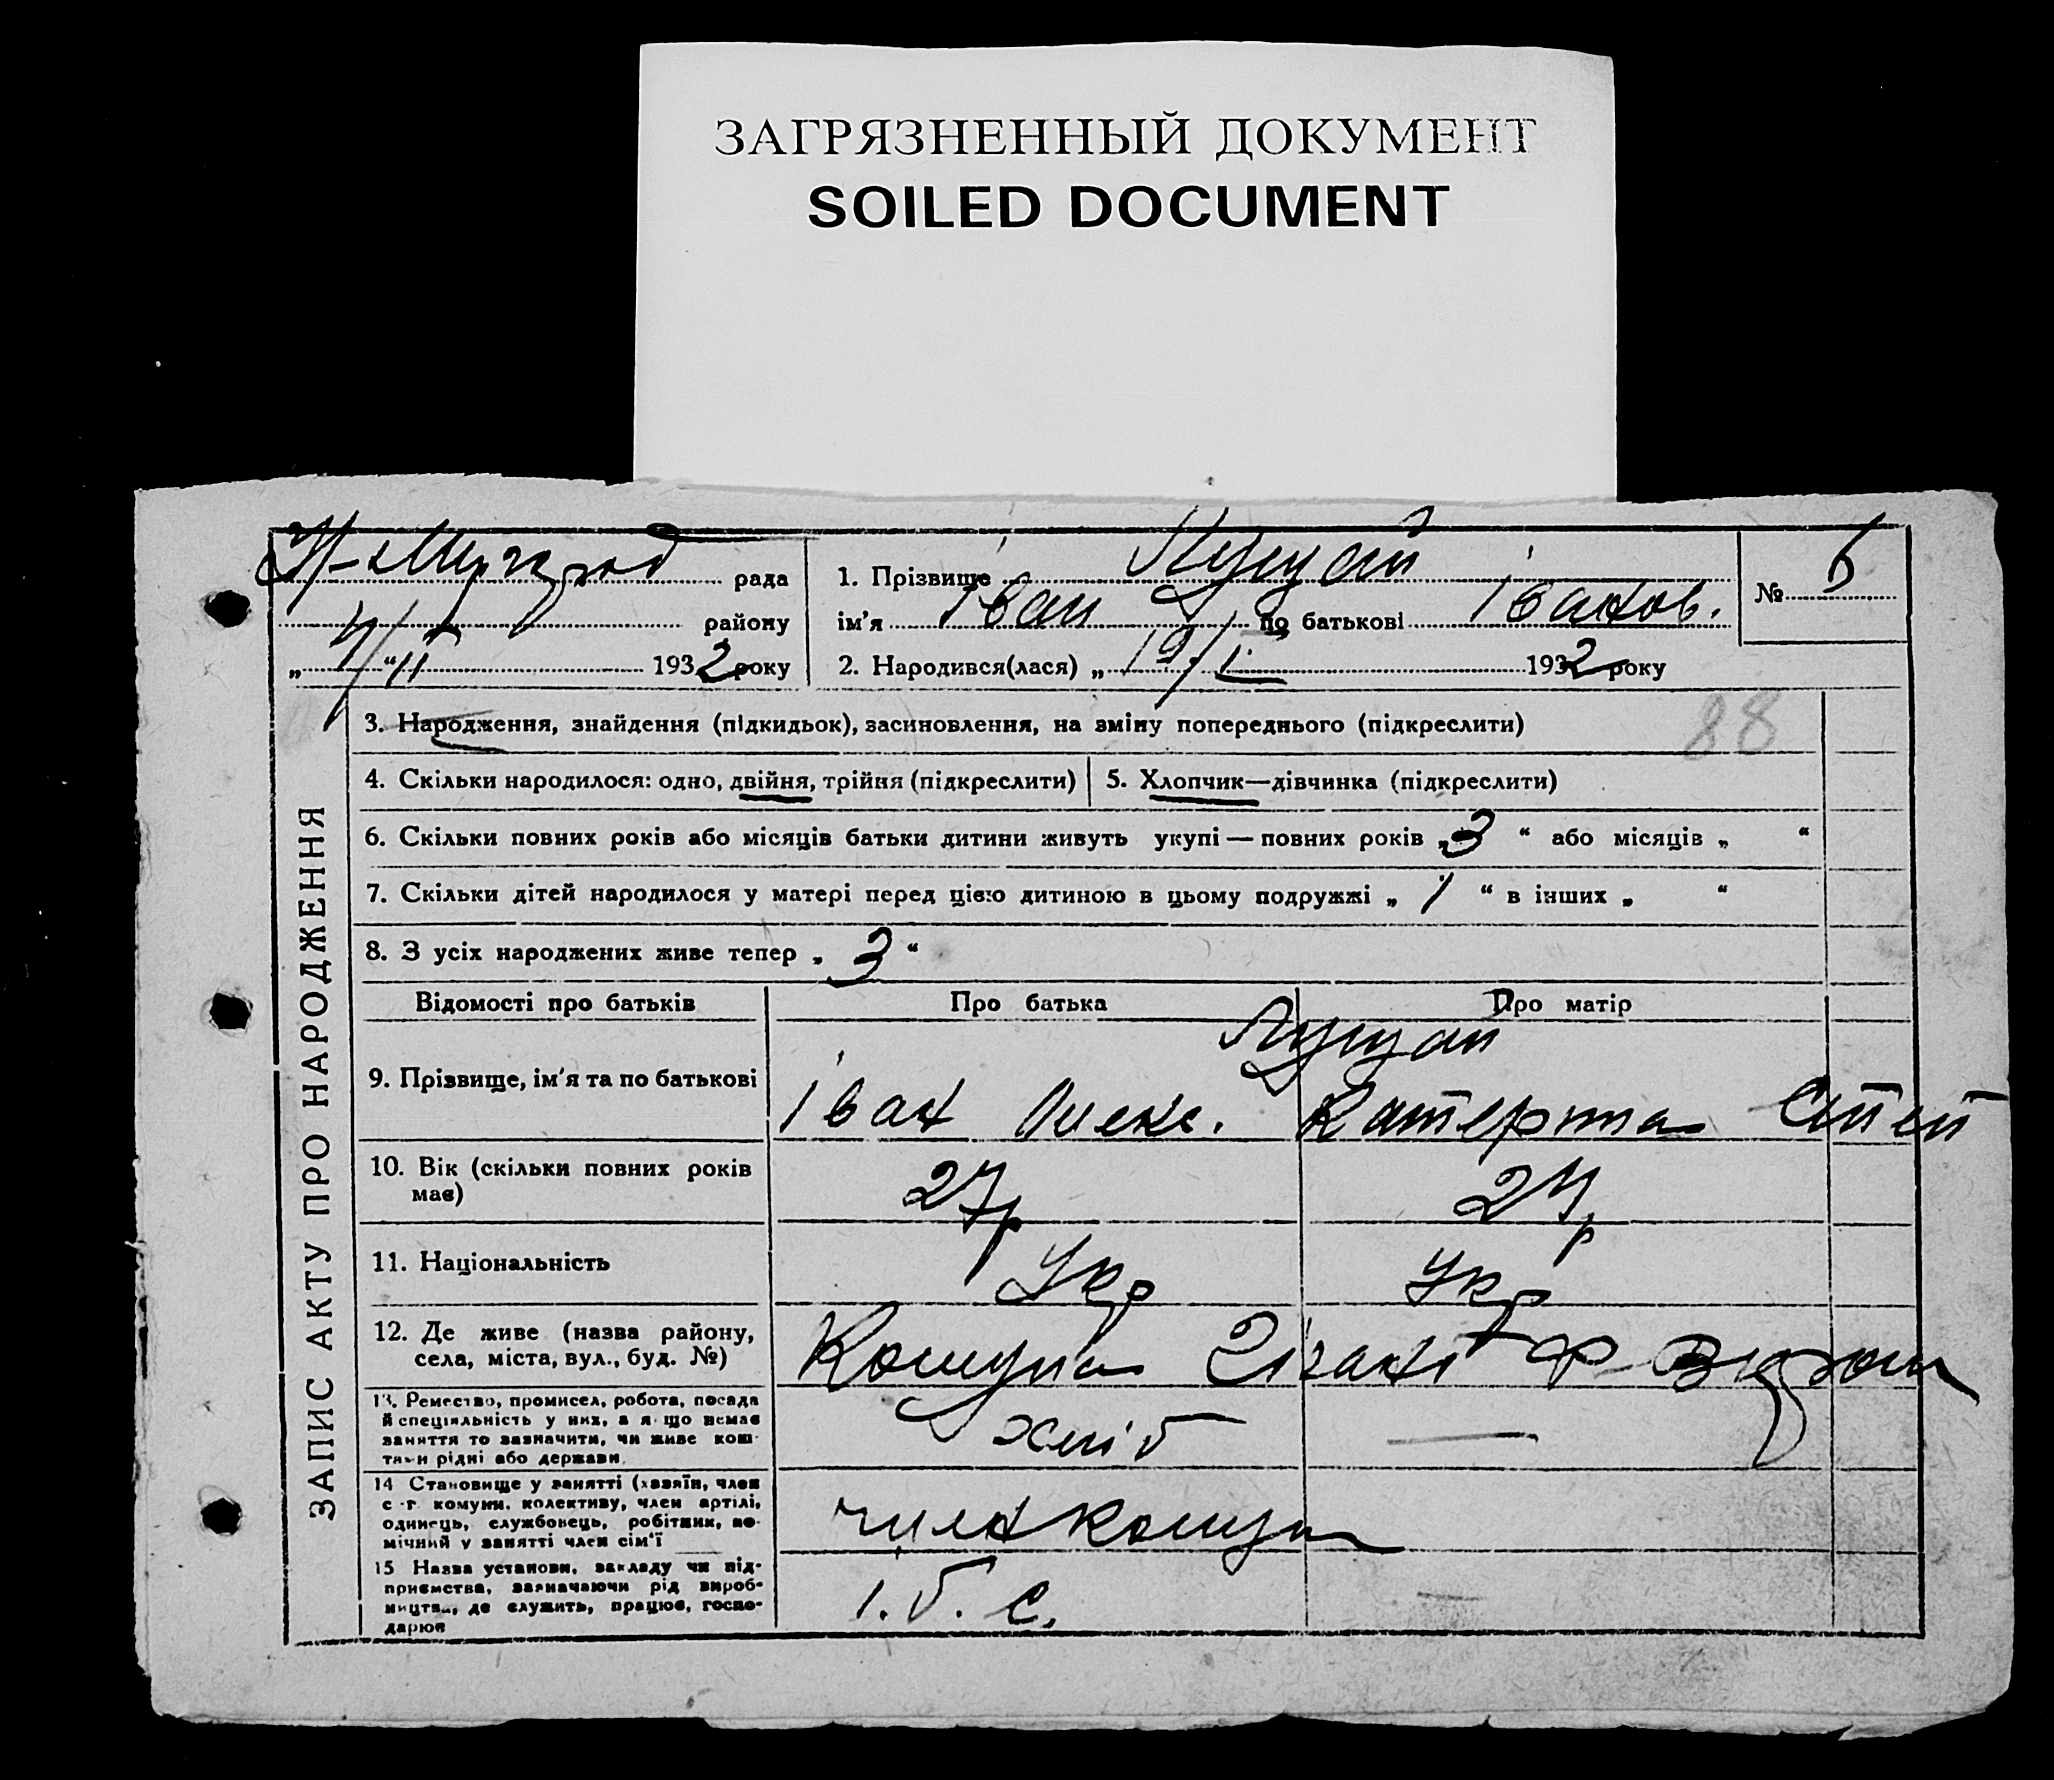 ЗАГРЯЗНЕННЫЙ ДОКУМЕНТ
SOILED DOCUMENT
рада
району
4/II 1932 року
1. Прізвище Лущай
ім'я Іван по батькові Іванов.
2. Народився(лася) „ 19/I 1932 року
№ 5
ЗАПИС АКТУ ПРО НАРОДЖЕННЯ
3. Народження, знайдення (підкидьок), засиновлення, на зміну попереднього (підкреслити)
88
4. Скільки народилося: одно, двійня, трійня (підкреслити)
5. Хлопчик—дівчинка (підкреслити)
6. Скільки повних років або місяців батьки дитини живуть укупі — повних років „ 3 “ або місяців „ “
7. Скільки дітей народилося у матері перед цією дитиною в цьому подружжі „ 1 “ в інших „ “
8. З усіх народжених живе тепер „ 3 “
Відомості про батьків Про батька Про матір
Лущай
9. Прізвище, ім'я та по батькові Іван Олекс. Катерина
10. Вік (скільки повних років має) 27 р 24 р
11. Національність Укр Укр
12. Де живе (назва району, села, міста, вул., буд. №) Комуна Гігант
13. Ремество, промисел, робота, посада
й спеціяльність у них, а якщо немає
заняття то зазначити, чи живе кош-
тами рідні або держави
хліб —
14 Становище у занятті (хазяїн, член
с.-г. комуни, колективу, член артілі,
одинець, службовець, робітник, по-
мічний у занятті член сім'ї
член комун
15 Назва установи, закладу чи під-
приємства, зазначаючи рід вироб-
ництва, де служить, працює, госпо-
дарює